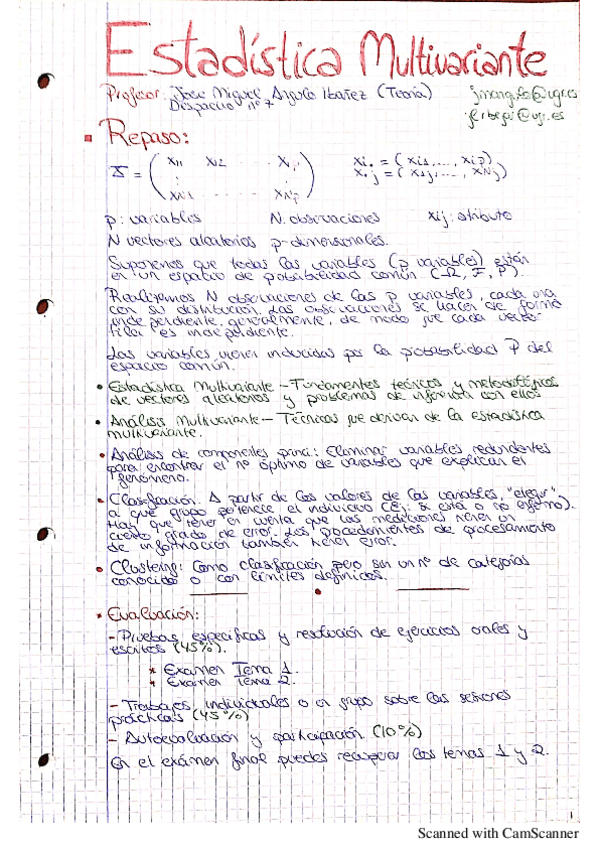 Estadística Multivariante
Profesor: Jose Miguel Angulo Ibañez (Teoría)
Despacho nº 7
jmangulo@ugr.es
@ugr.es
Repaso:
X = ( x11 x12 ... x1p
xN1 ... xNp )
xi. = (xi1, ..., xip)
x.j = (x1j, ..., xNj)
p: variables N: observaciones xij: atributo
N vectores aleatorios p-dimensionales.
Suponemos que todas las variables (p variables) están
en un espacio de probabilidad común (Ω, F, P).
Realizamos N observaciones de las p variables, cada una
con su distribución. Las observaciones se hacen de forma
independiente, generalmente, de modo que cada vector
fila es independiente.
Las variables vienen inducidas por la probabilidad P del
espacio común.
• Estadística Multivariante - Fundamentos teóricos y metodológicos
de vectores aleatorios y problemas de inferencia con ellos
• Análisis Multivariante - Técnicas que derivan de la estadística
multivariante.
• Análisis de componentes princi.: Eliminar variables redundantes
para encontrar el nº óptimo de variables que explican el
fenómeno.
• Clasificación. A partir de los valores de las variables, "elegir"
a que grupo pertenece el individuo (Ej: si está o no enfermo).
Hay que tener en cuenta que las mediciones tienen un
cierto grado de error. Los procedimientos de procesamiento
de información también tienen error.
• Clustering: Como clasificación pero sin un nº de categorías
conocidas o con límites definidos.
• Evaluación:
- Pruebas específicas y resolución de ejercicios orales y
escritos (45%).
* Examen Tema 1.
* Examen Tema 2.
- Trabajos individuales o en grupo sobre las sesiones
prácticas (45%)
- Autoevaluación y participación (10%)
En el exámen final puedes recuperar los temas 1 y 2.
1
Scanned with CamScanner